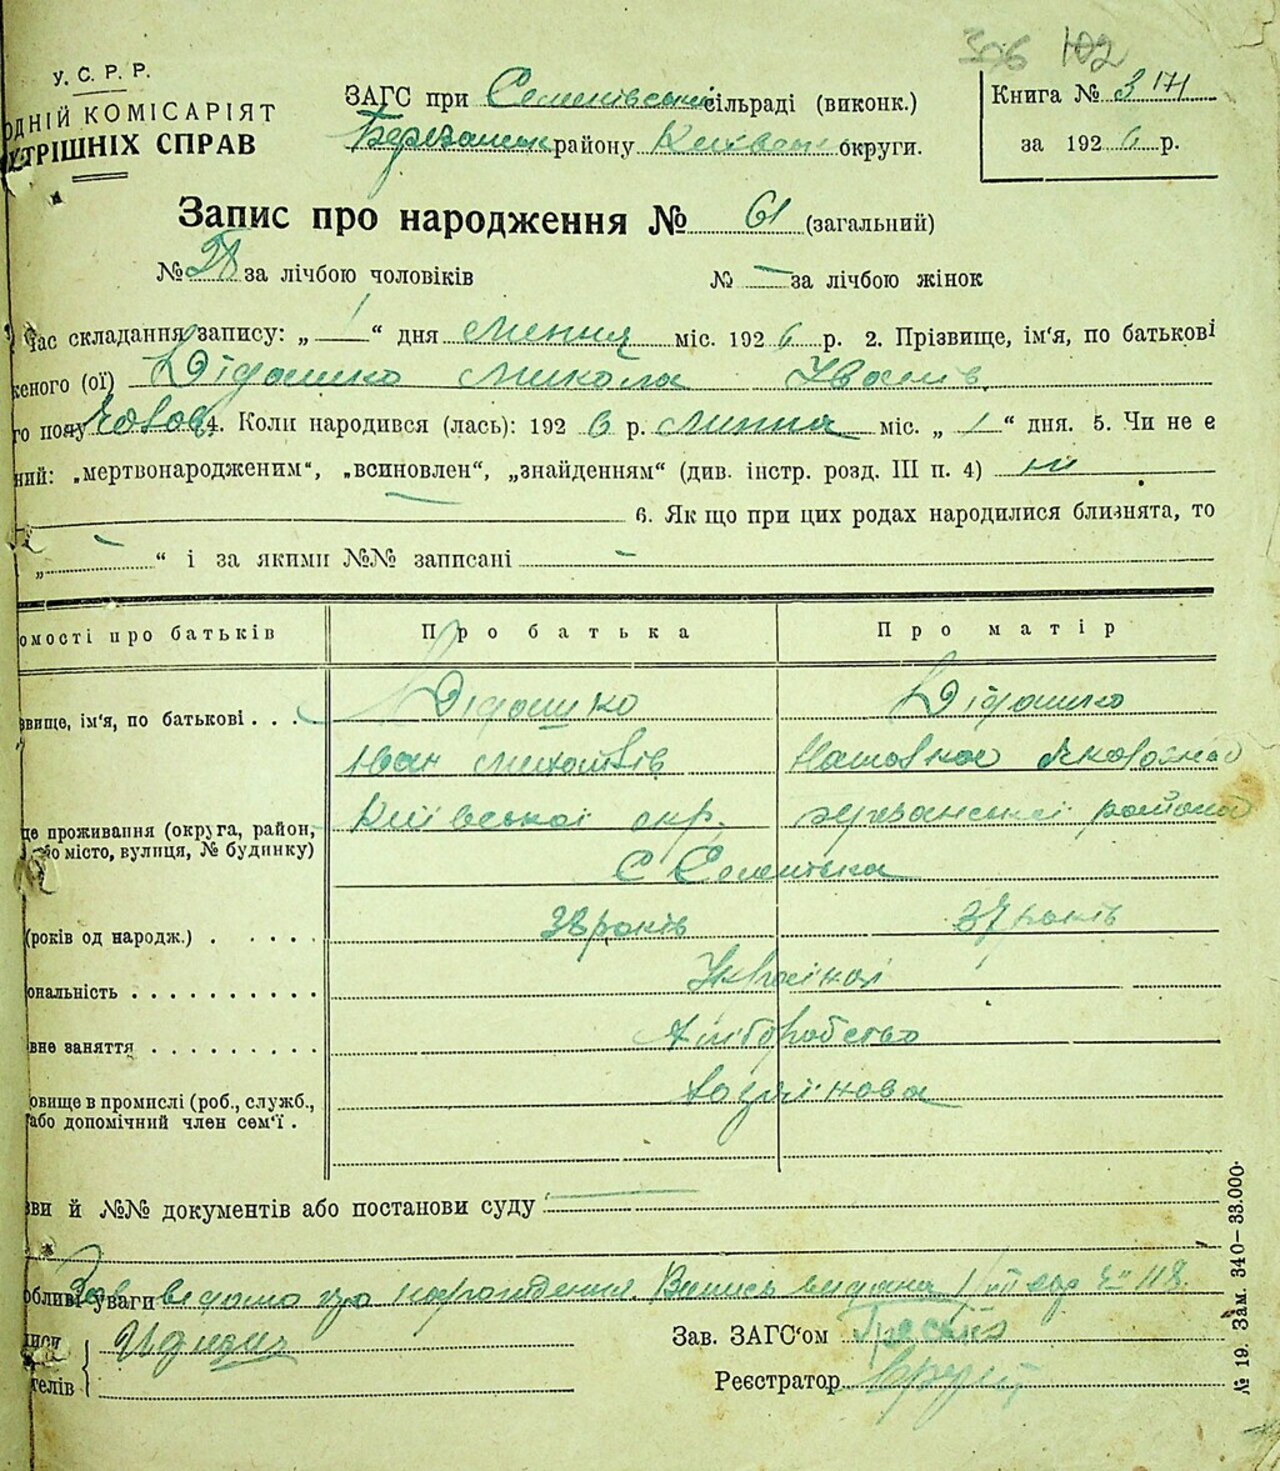 306 102
У. С. Р. Р.
ОДНІЙ КОМІСАРІЯТ
УТРІШНІХ СПРАВ
ЗАГС при Семенівській сільраді (виконк.)
Березанськ району Київськ округи.
Книга №
за 1926 р.
Запис про народження № 61 (загальний)
№ 28 за лічбою чоловіків № — за лічбою жінок
Час складання запису: „ 1 “ дня липня міс. 1926 р. 2. Прізвище, ім‘я, по батькові
женого (ої) Дідашко Микола Іванів
го полу Чолов. 4. Коли народився (лась): 1926 р. липня міс. „ 1 “ дня. 5. Чи не є
ний: „мертвонародженим“, „всиновлен“, „знайденням“ (див. інстр. розд. III п. 4) ні
6. Як що при цих родах народилися близнята, то
„ — “ і за якими №№ записані —
омості про батьків Про батька Про матір
звище, ім‘я, по батькові . . . Дідашко Дідашко
Іван Яковлена
це проживання (округа, район, Київської окр. району
або місто, вулиця, № будинку)
С Семенівка
(років од народж.) . . . . . 38 років 37 років
ональність . . . . . . . . . .
вне заняття . . . . . . . . . Хліборобство
овище в промислі (роб., служб.,
або допомічний член сем‘ї .
зви й №№ документів або постанови суду —
обливі уваги про нарождення. Випись видана
писи
телів
Зав. ЗАГС‘ом
Реєстратор
№ 19. Зам. 340—33.000.